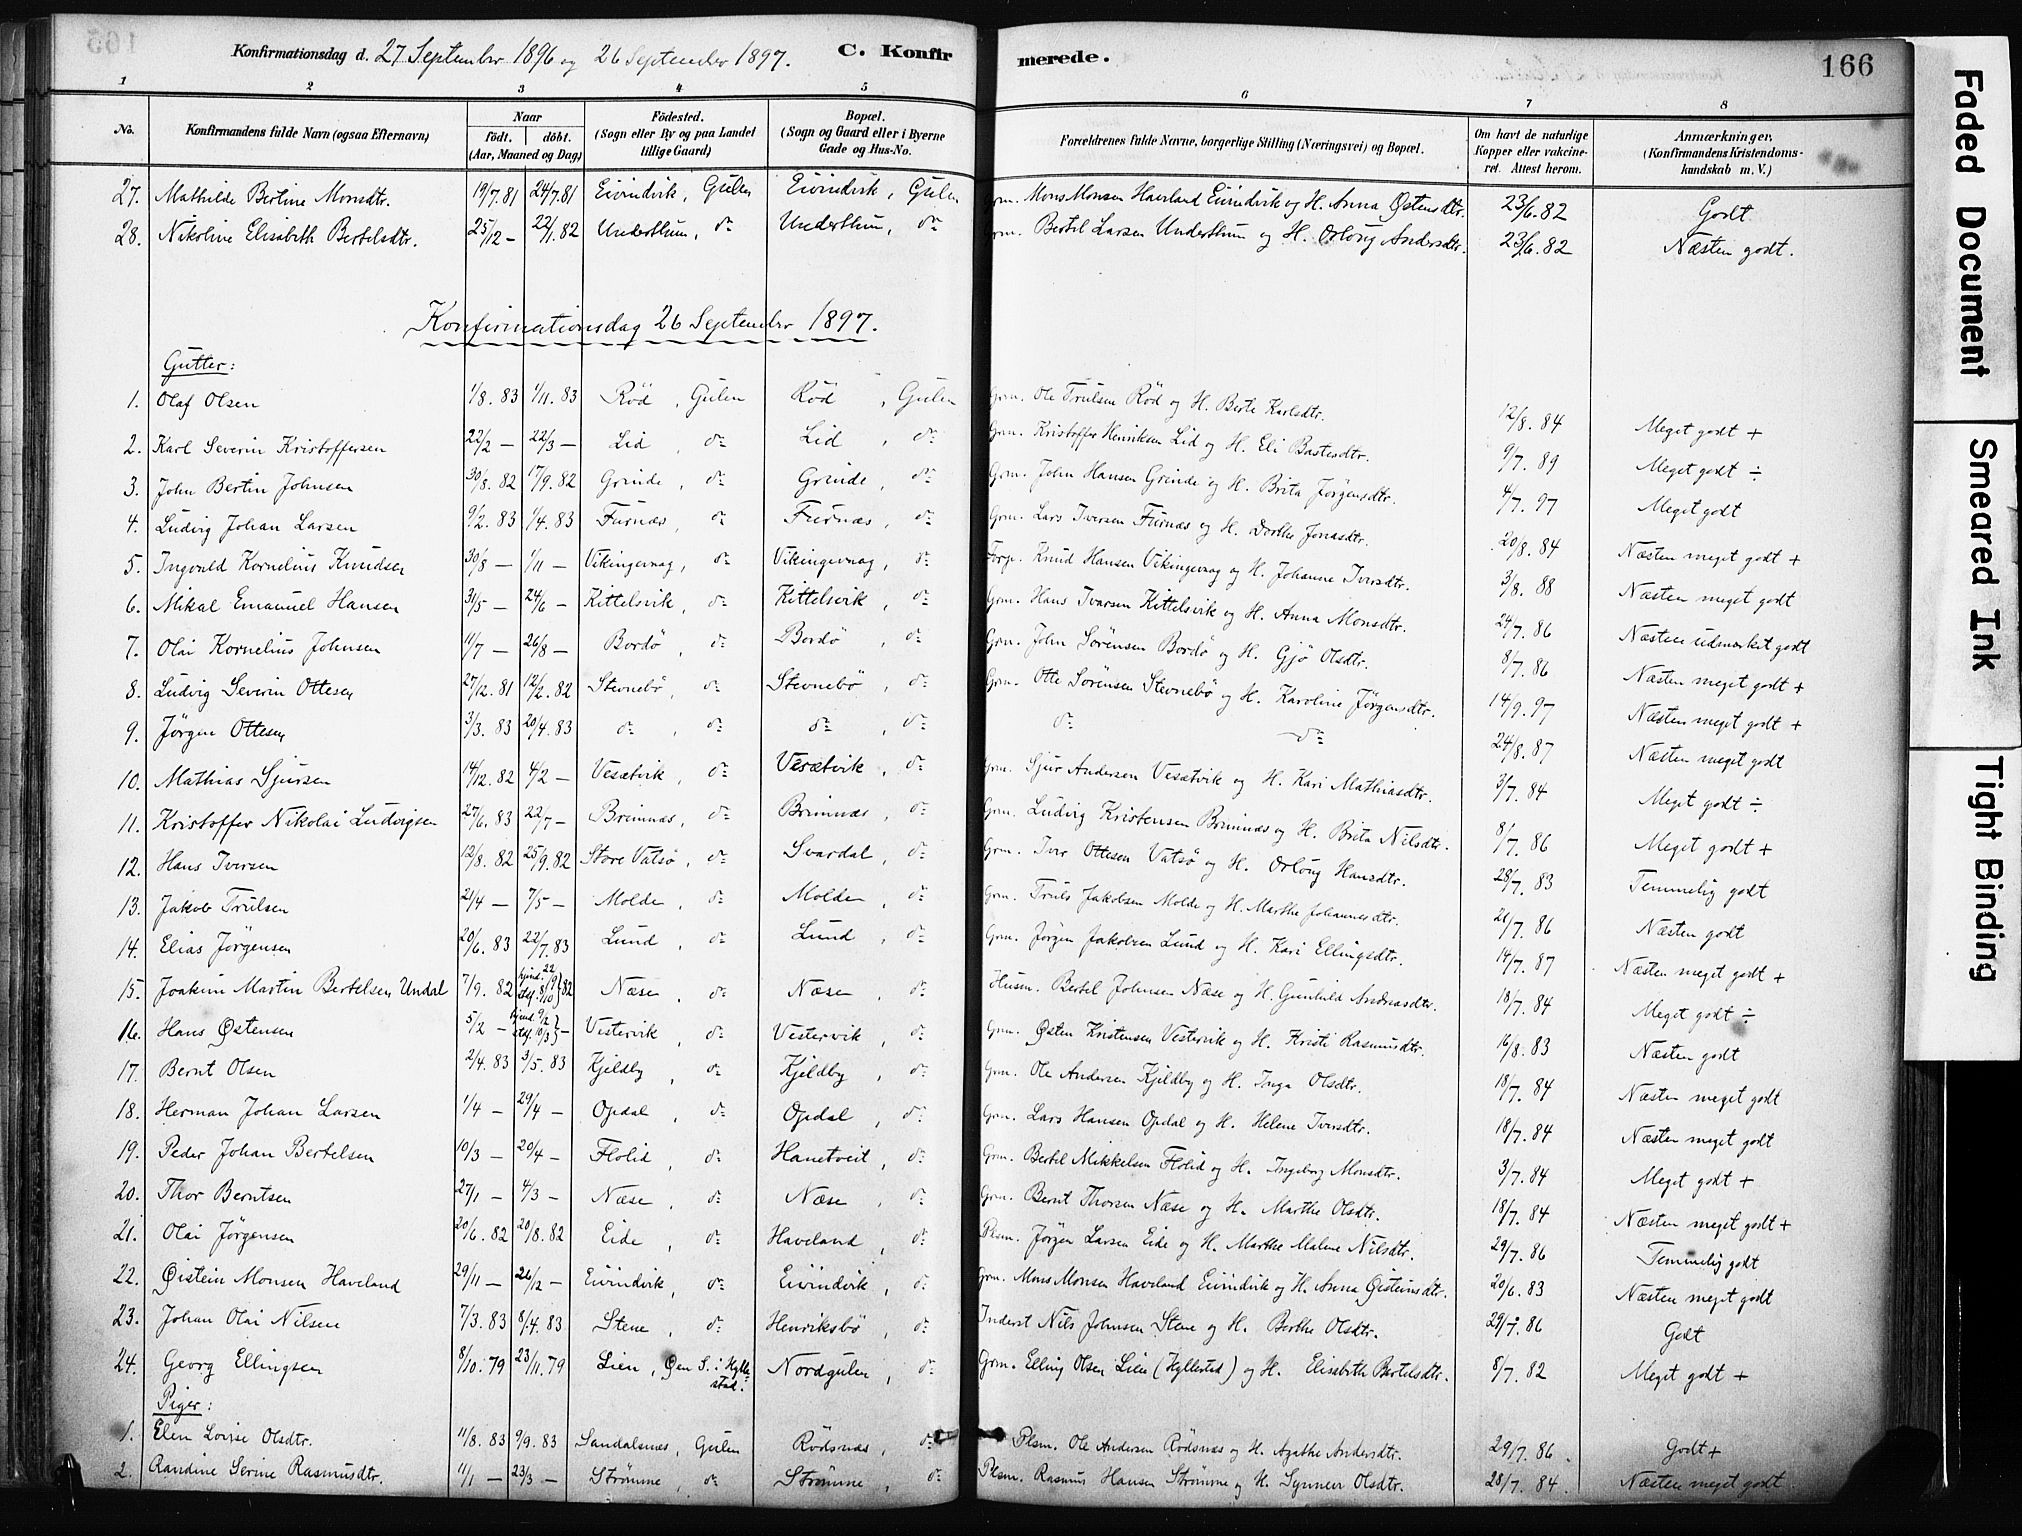 Konfirmationsdag d. 27 September 1896 og 26 September 1897. C. Konfirmerede. 166
1 2 3 4 5 6 7 8
No. Konfirmandens fulde Navn (ogsaa Efternavn) Naar født. døbt. (Aar, Maaned og Dag) Födested. (Sogn eller By og paa Landet tillige Gaard) Bopæl. (Sogn og Gaard eller i Byerne Gade og Hus-No. Forældrenes fulde Navne, borgerlige Stilling (Næringsvei) og Bopæl. Om havt de naturlige Kopper eller vakcineret. Attest herom. Anmærkninger. (Konfirmandens Kristendomskundskab m. V.)
27. Mathilde Bertine Monsdtr. 19/7.81 24/7.81 Eivindvik, Gulen Eivindvik, Gulen Grm. Mons Monsen Haveland Eivindvik og H. Anna Østensdtr. 23/6.82 Godt
28. Nikoline Elisabeth Bertelsdtr. 25/12 – 22/1.82 Underthun, do Underthun, do Grm. Bertel Larsen Underthun og H. Orloug Andersdtr. 23/6.82 Næsten godt.
Konfirmationsdag 26 September 1897.
Gutter:
1. Olaf Olsen 1/8.83 1/11.83 Röd, Gulen Röd, Gulen Grm. Ole Trulsen Röd og H. Berte Karlsdtr. 12/8.84 Meget godt +
2. Karl Severin Kristoffersen 22/2 – 22/3 – Lid, do Lid, do Grm. Kristoffer Henriksen Lid og H. Eli Bastesdtr. 9/7.89 Meget godt ÷
3. John Bertin Johnsen 30/8.82 17/9.82 Grinde, do Grinde, do Grm. John Hansen Grinde og H. Brita Jörgensdtr. 4/7.97 Meget godt
4. Ludvig Johan Larsen 9/2.83 1/4.83 Furnæs, do Furnæs, do Grm. Lars Iversen Furnæs og H. Dorthe Jonasdtr. 20/8.84 Næsten meget godt +
5. Ingvald Kornelius Knudsen 30/8 – 1/11 – Vikingevaag, do Vikingevaag, do Forp. Knud Hansen Vikingevaag og H. Johanne Iversdtr. 3/8.88 Næsten meget godt
6. Mikal Emanuel Hansen 31/5 – 24/6 – Kittelsvik, do Kittelsvik, do Grm. Hans Ivarsen Kittelsvik og H. Anna Monsdtr. 24/7.86 Næsten udmærket godt
7. Olai Kornelius Johnsen 11/7 – 26/8 – Bordö, do Bordö, do Grm. John Sörensen Bordö og H. Gjö Olsdtr. 8/7.86 Næsten meget godt +
8. Ludvig Severin Ottesen 27/12.81 12/2.82 Stevnebö, do Stevnebö, do Grm. Otte Sörensen Stevnebö og H. Karoline Jörgensdtr. 14/9.97 Næsten meget godt +
9. Jörgen Ottesen 3/3.83 20/4.83 do, do do, do do do 24/8.87 Næsten meget godt
10. Mathias Sjursen 14/12.82 4/2 – Vesætvik, do Vesætvik, do Grm. Sjur Andersen Vesætvik og H. Kari Mathiasdtr. 3/7.84 Meget godt ÷
11. Kristoffer Nikolai Ludvigsen 27/6.83 22/7 – Brimnæs, do Brimnæs, do Grm. Ludvig Kristensen Brimnæs og H. Brita Nilsdtr. 8/7.86 Meget godt +
12. Hans Iversen 12/8.82 25/9.82 Store Vatsö, do Svardal, do Grm. Iver Ottesen Vatsö og H. Orloug Hansdtr. 28/7.83 Temmelig godt
13. Jakob Trulsen 21/4 – 7/5 – Molde, do Molde, do Grm. Truls Jakobsen Molde og H. Marthe Johannesdtr. 21/7.86 Næsten godt
14. Elias Jörgensen 20/6.83 22/7.83 Lund, do Lund, do Grm. Jörgen Jakobsen Lund og H. Kari Ellingsdtr. 14/7.87 Næsten meget godt +
15. Joakim Martin Bertelsen Undal 7/9.82 hjmd. 22/9 stf. 8/10 } 82 Næse, do Næse, do Husm. Bertel Johnsen Næse og H. Gunhild Andreasdtr. 18/7.84 Meget godt ÷
16. Hans Østensen 5/2 – hjmd. 9/2 stf. 10/3 } – Vestervik, do Vestervik, do Grm. Østen Kristensen Vestervik og H. Kristi Rasmusdtr. 16/8.83 Næsten godt
17. Bernt Olsen 2/4.83 3/5.83 Kjeldby, do Kjeldby, do Grm. Ole Andersen Kjeldby og H. Inga Olsdtr. 18/7.84 Næsten meget godt
18. Herman Johan Larsen 1/4 – 29/4 – Opdal, do Opdal, do Grm. Lars Hansen Opdal og H. Helene Iversdtr. 18/7.84 Næsten meget godt
19. Peder Johan Bertelsen 10/3 – 20/4 – Flolid, do Hanetveit, do Grm. Bertel Mikkelsen Flolid og H. Ingeborg Monsdtr. 3/7.84 Meget godt +
20. Thor Berntsen 27/1 – 4/3 – Næse, do Næse, do Grm. Bernt Thorsen Næse og H. Marthe Olsdtr. 18/7.84 Næsten meget godt +
21. Olai Jörgensen 20/6.82 20/8.82 Eide, do Haveland, do Plsm. Jörgen Larsen Eide og H. Marthe Malene Nilsdtr. 29/7.86 Temmelig godt
22. Øistein Monsen Haveland 29/11 – 26/12 – Eivindvik, do Eivindvik, do Grm. Mons Monsen Haveland Eivindvik og H. Anna Øisteinsdtr. 20/6.83 Næsten meget godt
23. Johan Olai Nilsen 7/3.83 8/4.83 Stene, do Henriksbö, do Inderst Nils Johnsen Stene og H. Berthe Olsdtr. 29/7.86 Godt
24. Georg Ellingsen 8/10.79 23/11.79 Lien, Øen S. i Hyllestad. Nordgulen, do Grm. Elling Olsen Lien (Hyllestad) og H. Elisabeth Bertelsdtr. 8/7.82 Meget godt +
Piger:
1. Elen Lovise Olsdtr. 11/8.83 9/9.83 Sandalsnæs, Gulen Rödsnæs, do Plsm. Ole Andersen Rödsnæs og H. Agathe Andersdtr. 29/7.86. Godt +
2. Randine Serine Rasmusdtr. 11/1 – 23/3 – Strömme, do Strömme, do Plsm. Rasmus Hansen Strömme og H. Synneve Olsdtr. 28/7.84. Næsten meget godt
Faded Document
Smeared Ink
Tight Binding